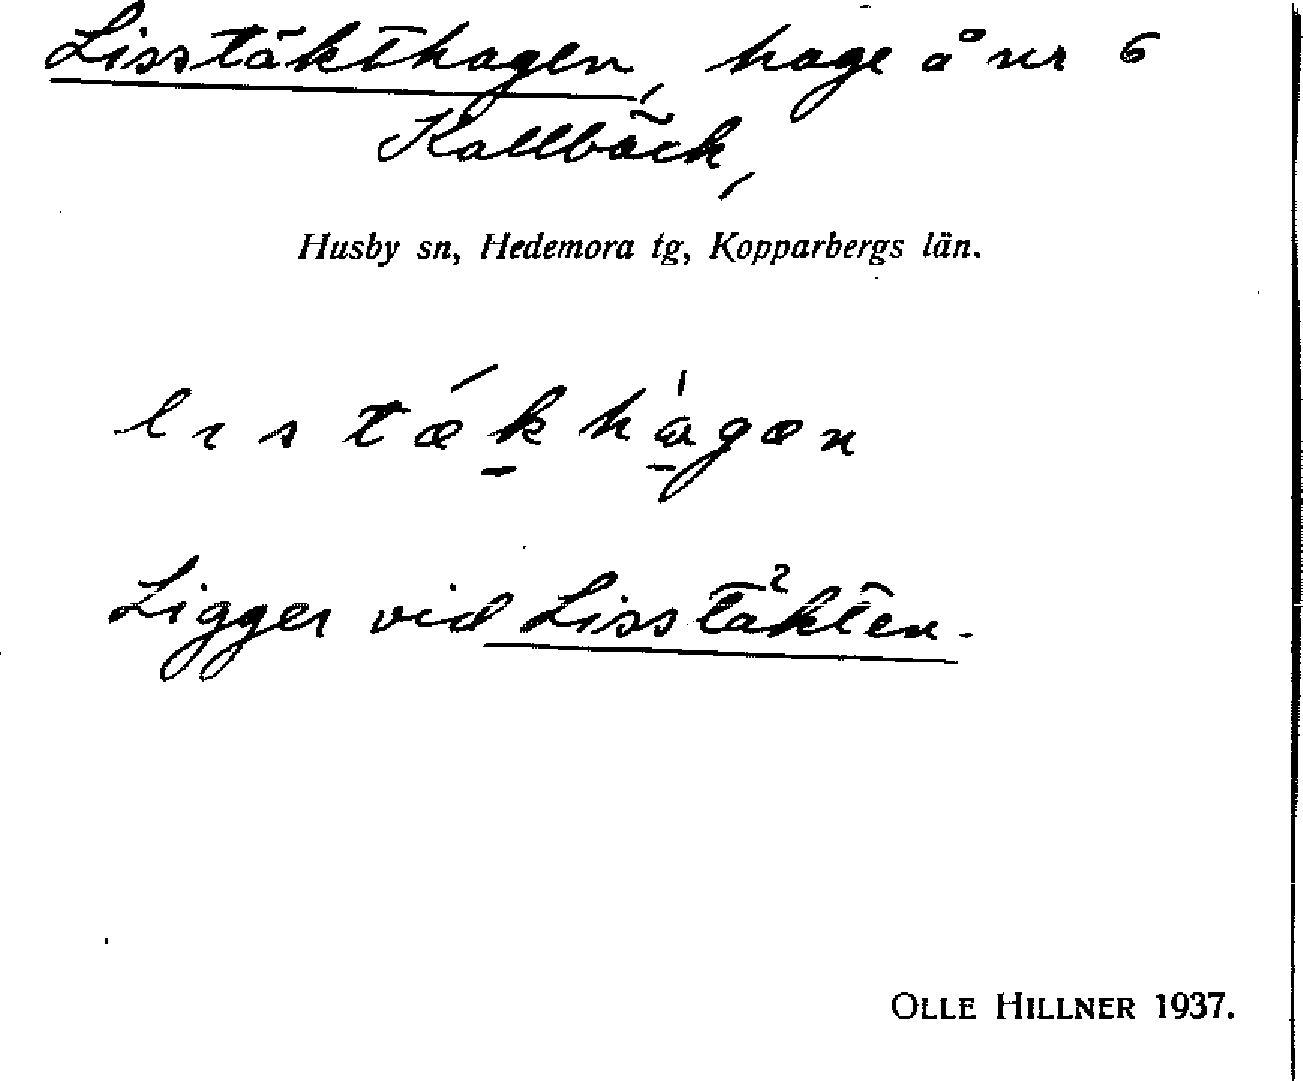 Lisstäkthagen, hage å nr 6
Kallbäck,
Husby sn, Hedemora tg, Kopparbergs län.
lıstǽkhàgæn
Ligger vid Lisstäkten.
OLLE HILLNER 1937.